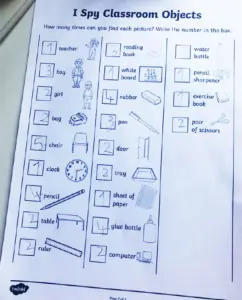 I Spy Classroom Objects
How many times can you find each picture? Write the number in the box.
1 teacher
3 boy
2 girl
2 bag
5 chair
1 clock
4 pencil
2 table
2 ruler
2 reading
book
1 white
board
4 rubber
3 pen
2 door
2 tray
1 sheet of
paper
4 glue bottle
2 computer
water
bottle
1 pencil
sharpener
1 exercise
book
2 pair
of scissors
twinkl